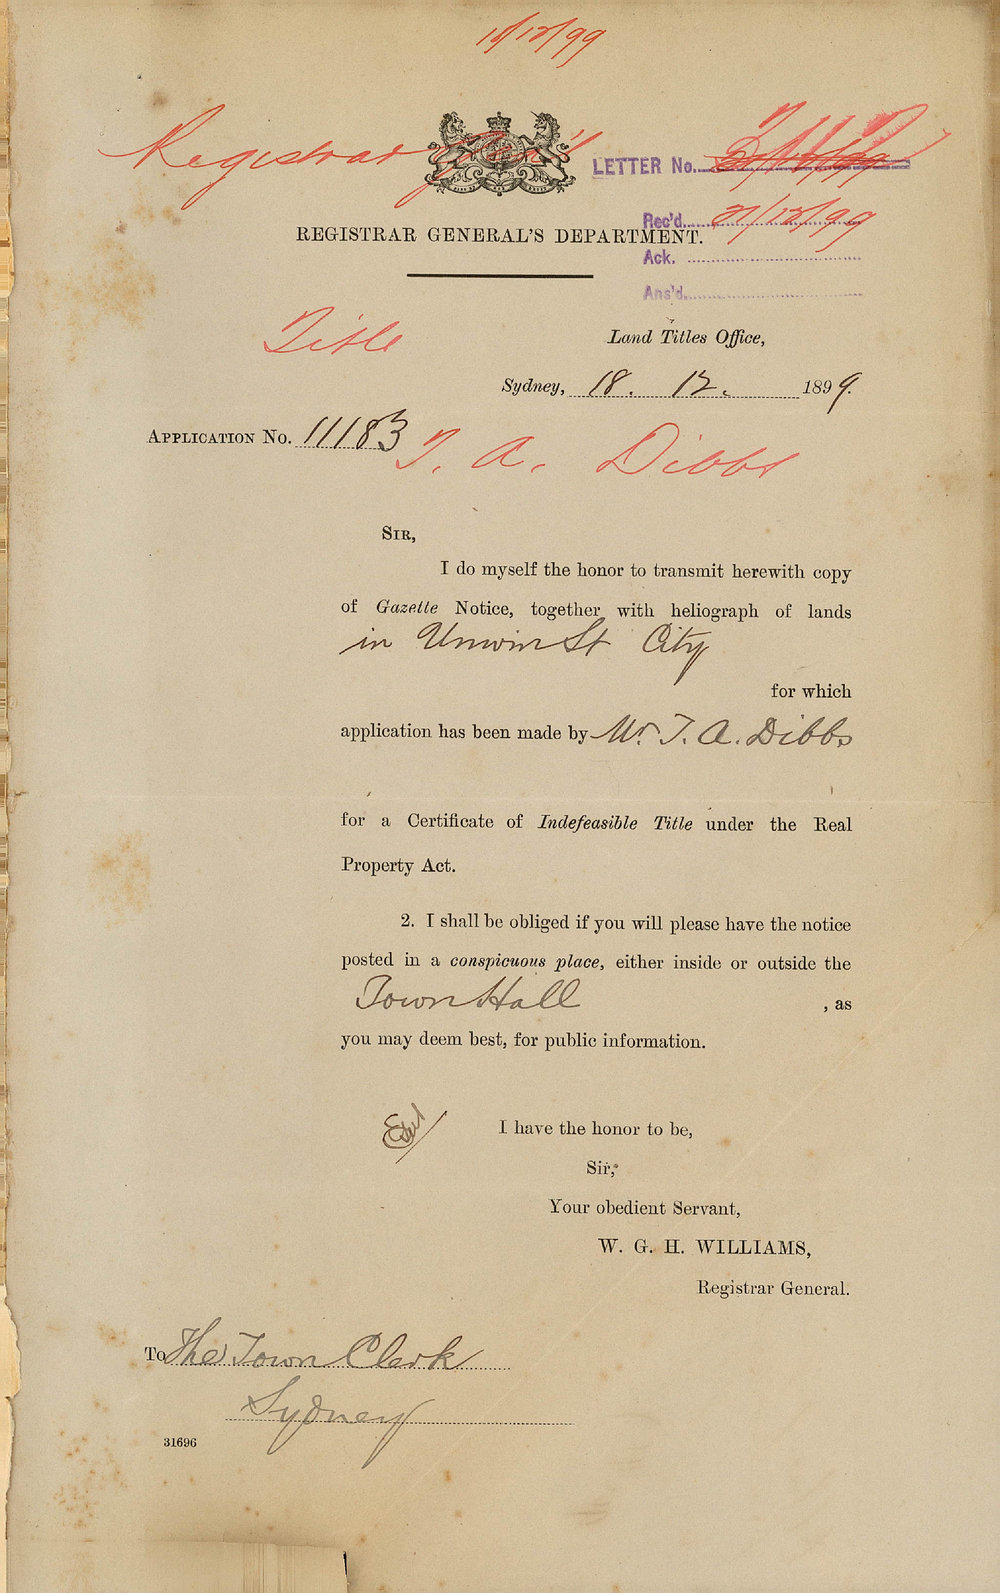 18/12/99
Registrar Gen'l
LETTER No.
Rec'd. 21/12/99
REGISTRAR GENERAL'S DEPARTMENT.
Ack.
Ans'd.
Title
Land Titles Office,
Sydney, 18. 12. 1899.
APPLICATION No. 11183
T. A. Dibbs
SIR,
I do myself the honor to transmit herewith copy
of Gazette Notice, together with heliograph of lands
in Unwin St City
for which
application has been made by Mr. T. A. Dibbs
for a Certificate of Indefeasible Title under the Real
Property Act.
2. I shall be obliged if you will please have the notice
posted in a conspicuous place, either inside or outside the
Town Hall , as
you may deem best, for public information.
I have the honor to be,
Sir,
Your obedient Servant,
W. G. H. WILLIAMS,
Registrar General.
To The Town Clerk
Sydney
31696